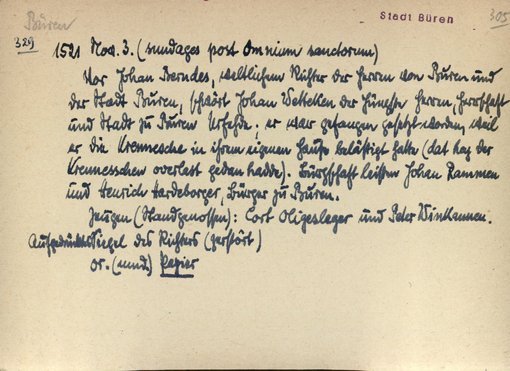 Büren
Stadt Büren
305
329
1521 Nov. 3. (sundages post Omnium sanctorum)
Vor Johan Berndes, weltlichem Richter der Herrn von Buren und
der Stadt Buren, schwört Johan Wetteken der Jüngste Herrn Herrschaft
und Stadt zu Buren Urfehde; er war gefangen gesetzt worden, weil
er die Krennesche in ihrem eigenen Hause belästigt hatte (dat he der
Krennesschen overlast gedan hadde). Bürgschaft leisten Johan Rammen
und Henrich Hardeborger, Bürger zu Buren.
Zeugen (Standgenossen): Cort Oligesleger und Peter Winkannen.
Aufgedrücktes Siegel des Richters (zerstört)
Or. (mnd.) Papier